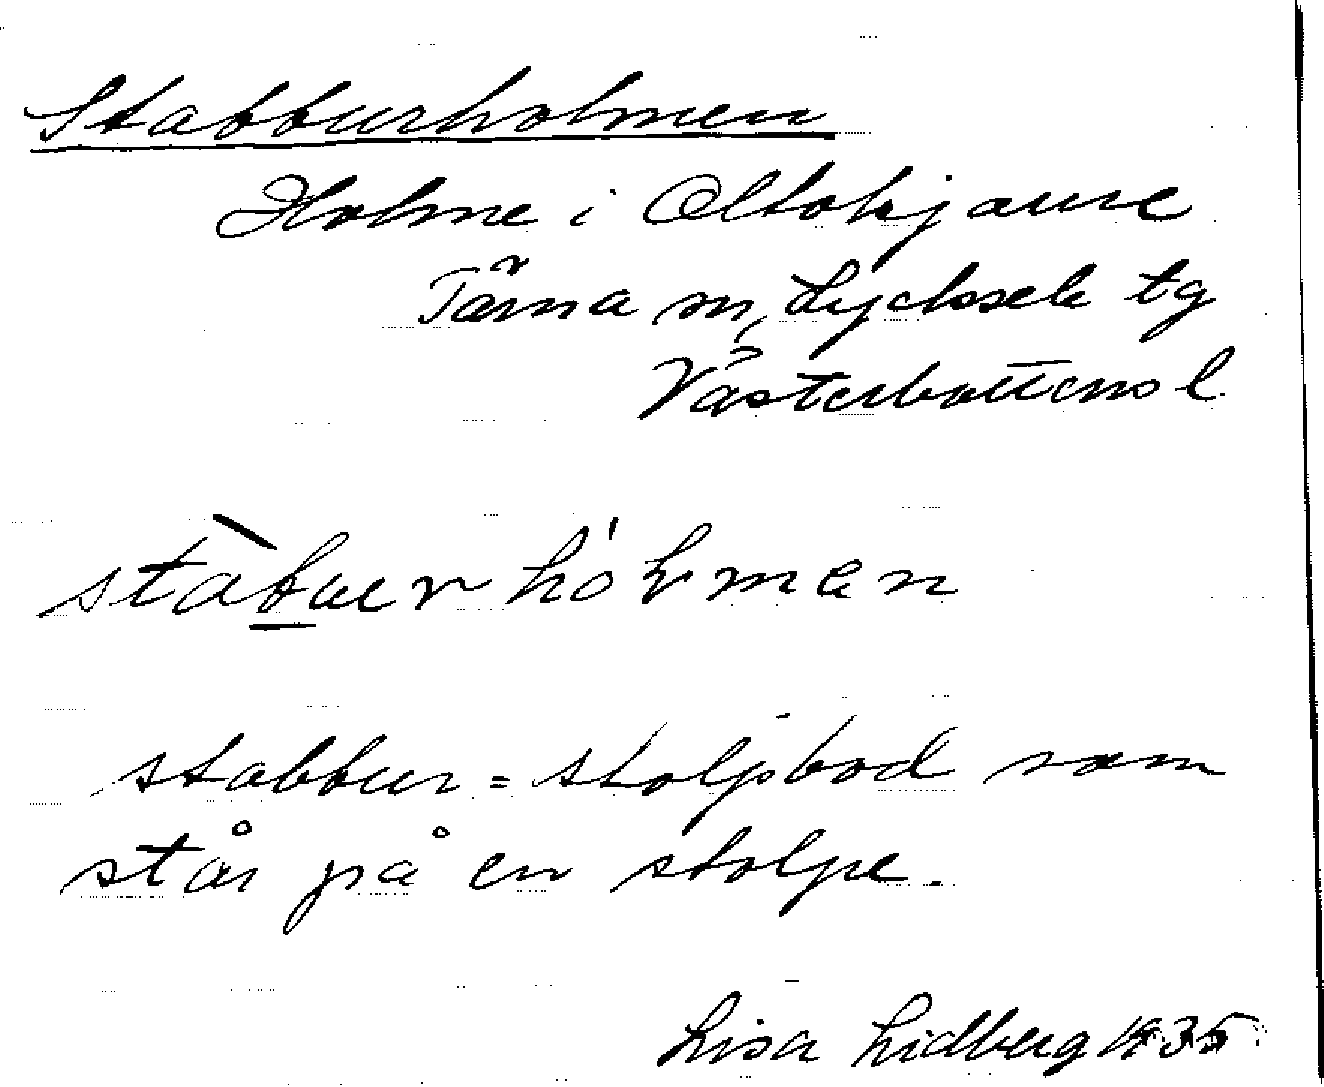 Stabburholmen
Holme i Oltokjaure
Tärna sn, Lycksele tg
Västerbottens l
stàbuer hól̥man
stabbur = stolpbod som
står på en stolpe.
Lisa Lidberg 1935